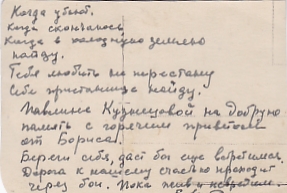 Когда убьют.
Когда скончаюсь
Когда в холодную землю
пойду.
Тебя любить не перестану
Себе пристанище найду.
Павлине Кузнецовой на Добрую
память с горячим приветом
от Бориса.
Береги себя, даст бог еще встретимся.
Дорога к нашему счастью проходит
через бои. Пока жив и невредим.